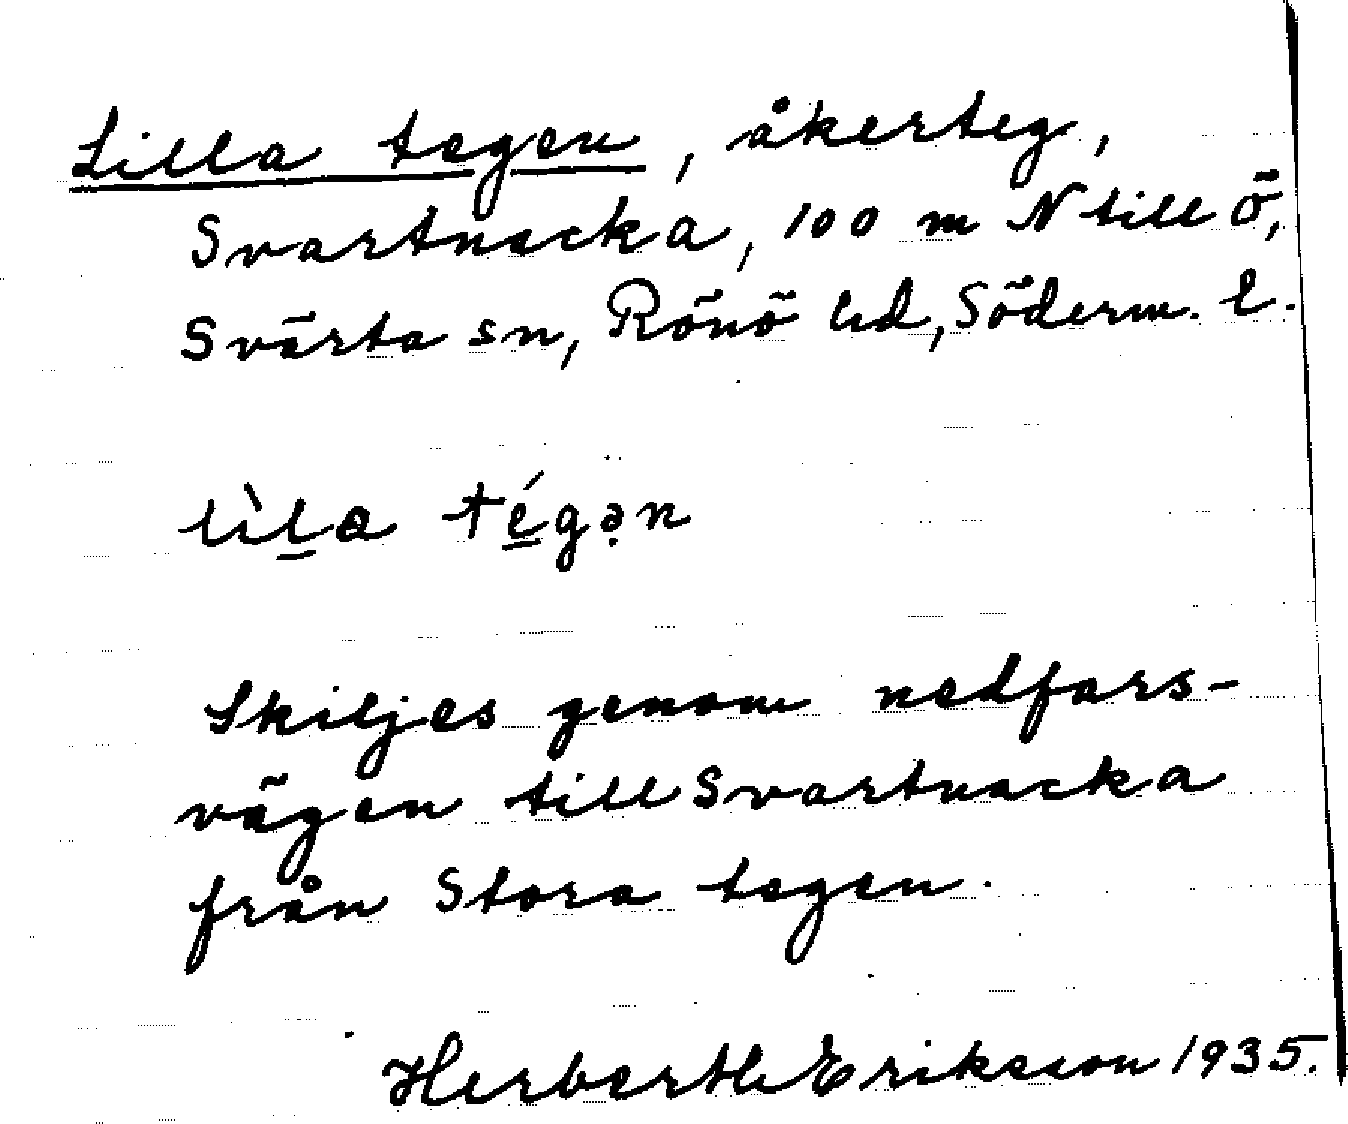 Lilla tegen, åkerteg,
Svartnacka, 100 m N till Ö,
Svärta sn, Rönö hd, Söderm. l.
lìl̲a té̲gə̣n
Skiljes genom nedfars-
vägen till Svartnacka
från Stora tegen.
Herberth Eriksson 1935.